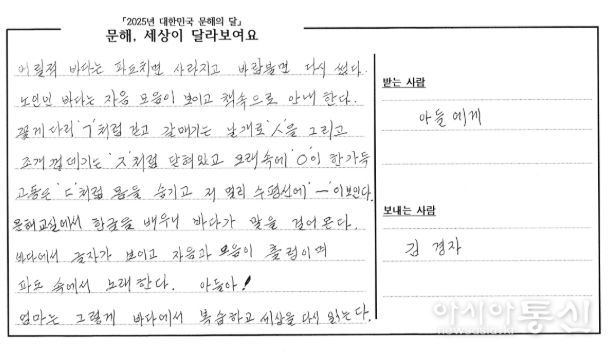 「2025년 대한민국 문해의 달」
문해, 세상이 달라보여요
어릴적 바다는 파도치면 사라지고 바람불면 다시 썼다.
노인인 바다는 자음 모음이 보이고 책속으로 안내 한다.
꽃게 다리 'ㄱ'처럼 걷고 갈매기는 날개로 'ㅅ'을 그리고
조개 껍데기는 'ㅈ'처럼 닫혀있고 모래속에 'ㅇ'이 한가득
고동은 'ㄷ'처럼 몸을 숨기고 저 멀리 수평선에 'ㅡ'이보인다.
문해교실에서 한글을 배우니 바다가 말을 걸어 온다.
바다에서 글자가 보이고 자음과 모음이 출렁이며
파도 속에서 노래한다. 아들아!
엄마는 그렇게 바다에서 복습하고 세상을 다시 읽는다.
받는 사람
아들에게
보내는 사람
김 경자
아시아통신